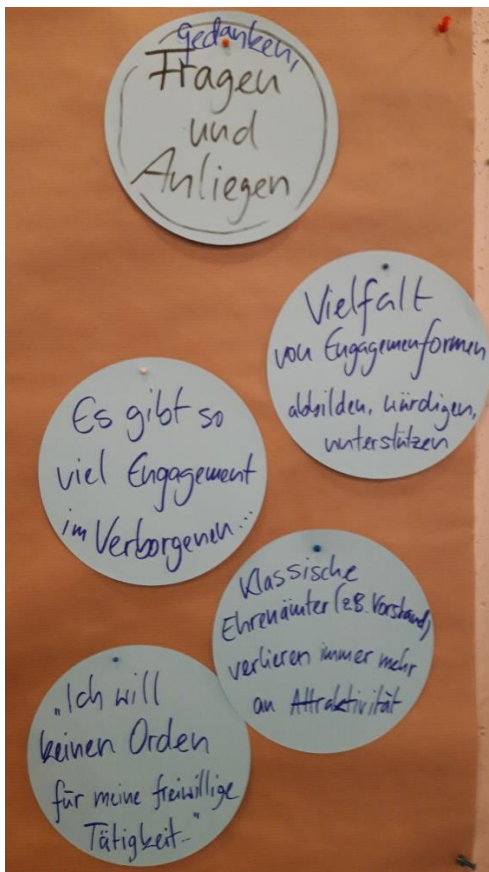 Gedanken,
Fragen
und
Anliegen
Vielfalt
von Engagemenformen
abbilden, würdigen,
unterstützen
Es gibt so
viel Engagement
im Verborgenen...
Klassische
Ehrenämter (z.B. Vorstand)
verlieren immer mehr
an Attraktivität
"Ich will
keinen Orden
für meine freiwillige
Tätigkeit..."